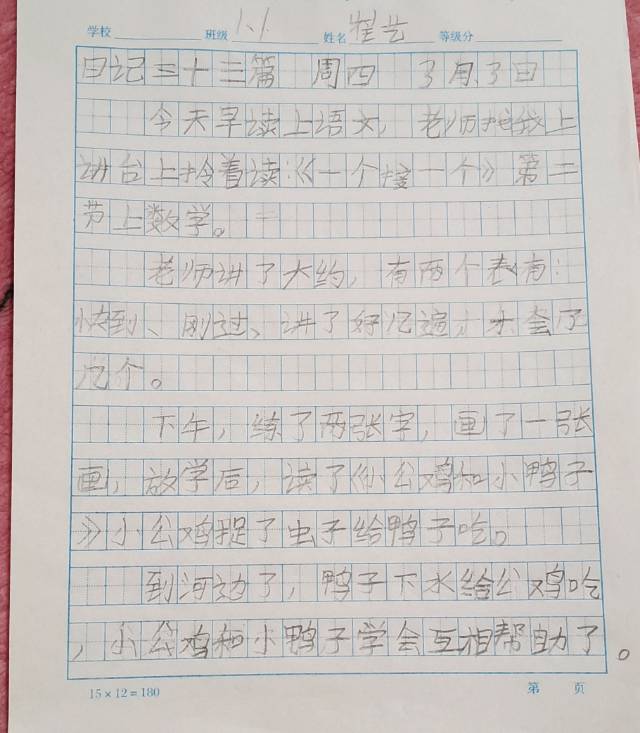 学校 班级 1.1 姓名 程艺 等级分
日记三十三篇 周四 3月3日
今天早读上语文,老师抱我上
讲台上拎着读:《一个接一个》第二
节上数学。
老师讲了大约,有两个表有:
快到、刚过、讲了好几遍,才会了
几个。
下午,练了两张字,画了一张
画,放学后,读了《小公鸡和小鸭子
》小公鸡捉了虫子给鸭子吃。
到河边了,鸭子下水给公鸡吃
,小公鸡和小鸭子学会互相帮助了。
15×12=180 第 页